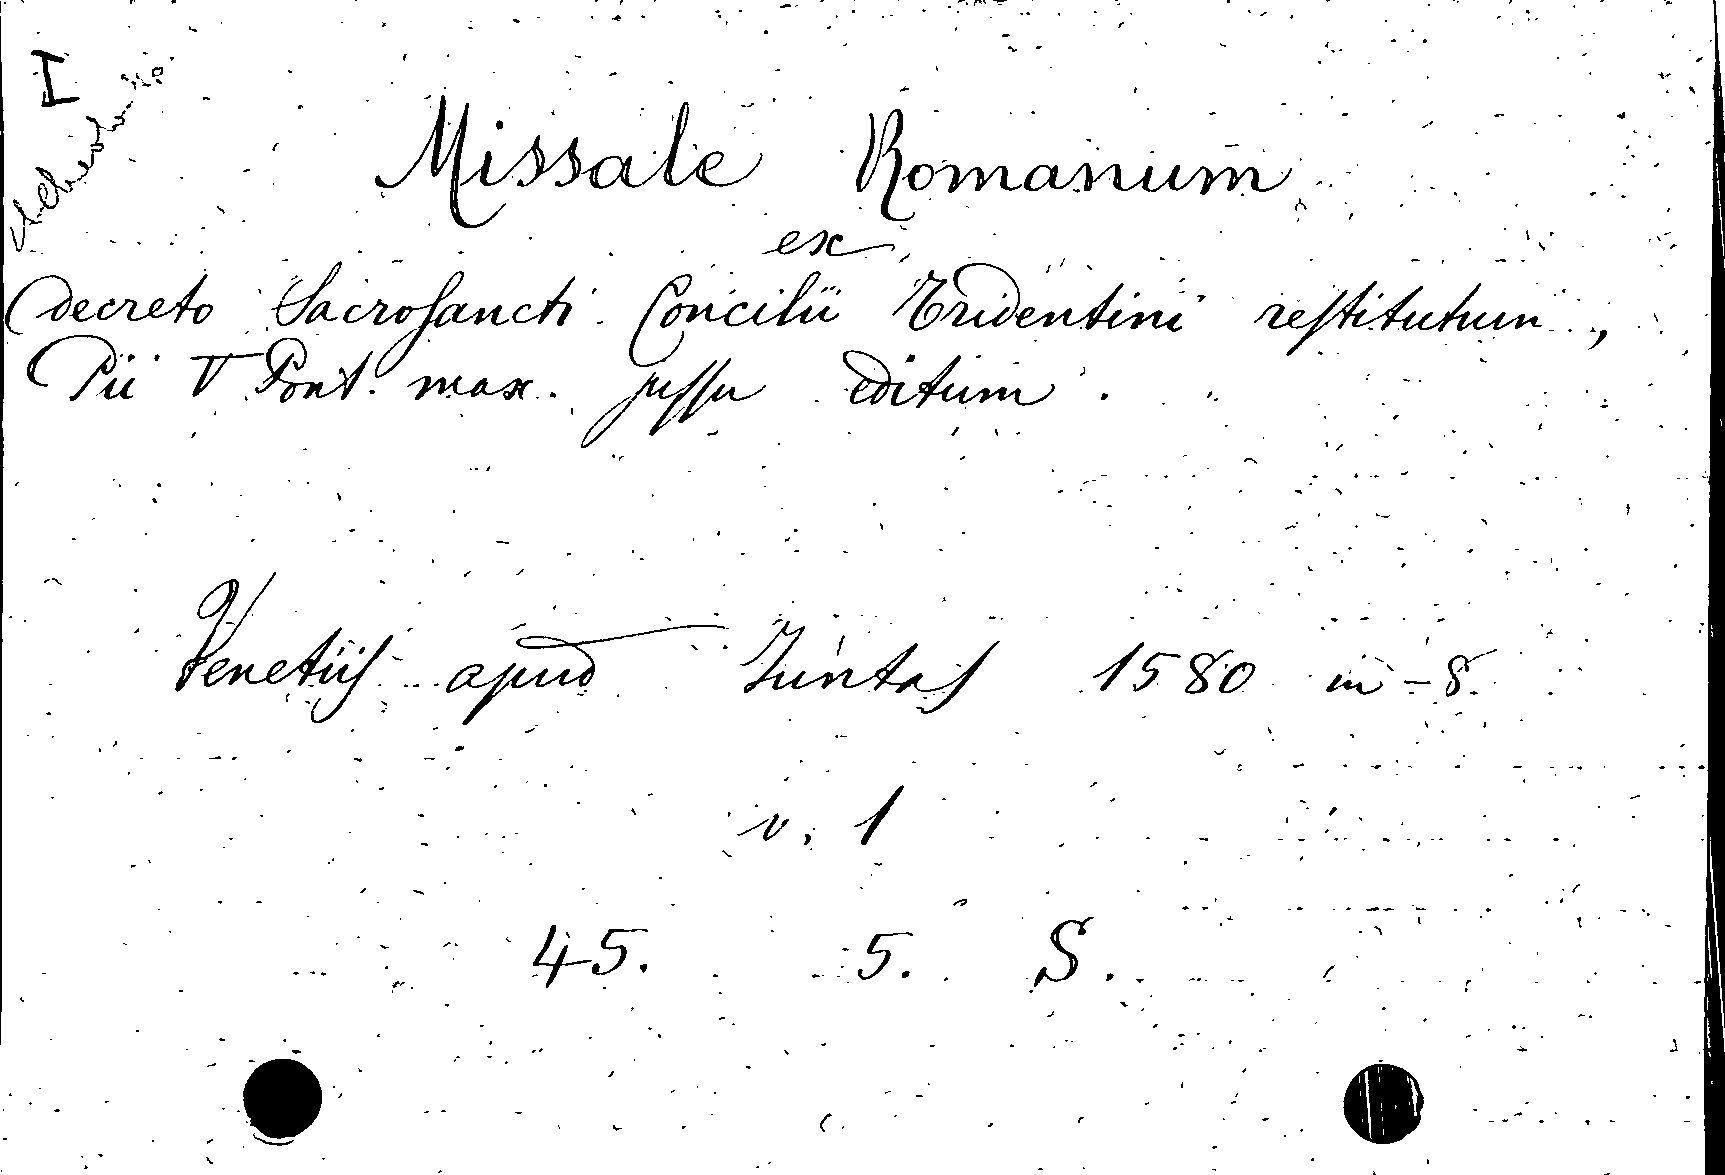 I
Missale Romanum
ex
decreto Sacrosancti Concilii Tridentini restitutum,
Pii V Pont. max. jussu editum.
Venetiis apud Juntas 1580 in-8.
v. 1
45. 5. S.